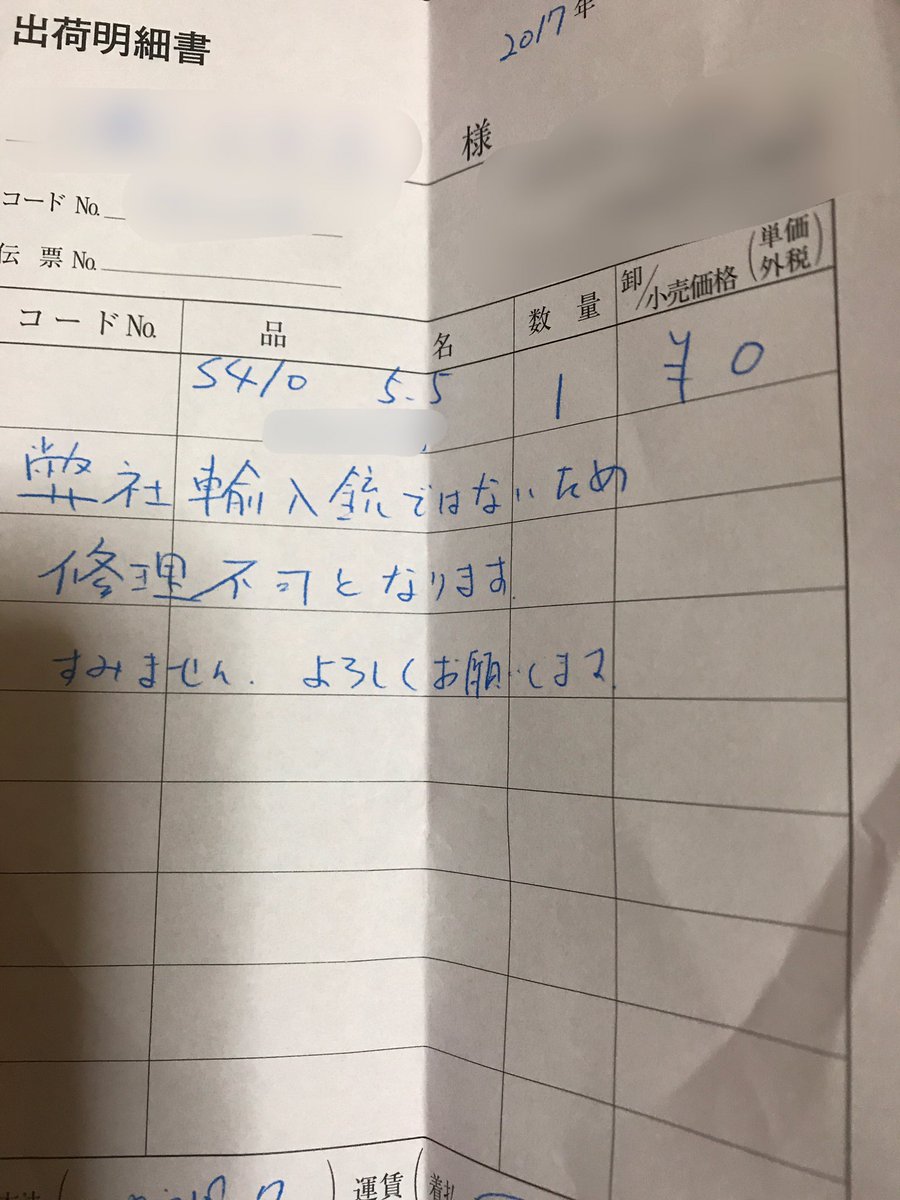 出荷明細書
2017年
様
コードNo.
伝票No.
コードNo. 品名 数量 卸/小売価格(単価外税)
S410 5.5 1 ¥0
弊社輸入銃ではないため
修理不可となります.
すみません. よろしくお願いします.
運賃(着払